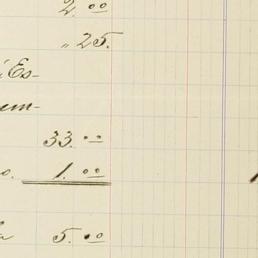 2.00
" 25.
Es-
um-
33.00
o. 1.00
a 5.00